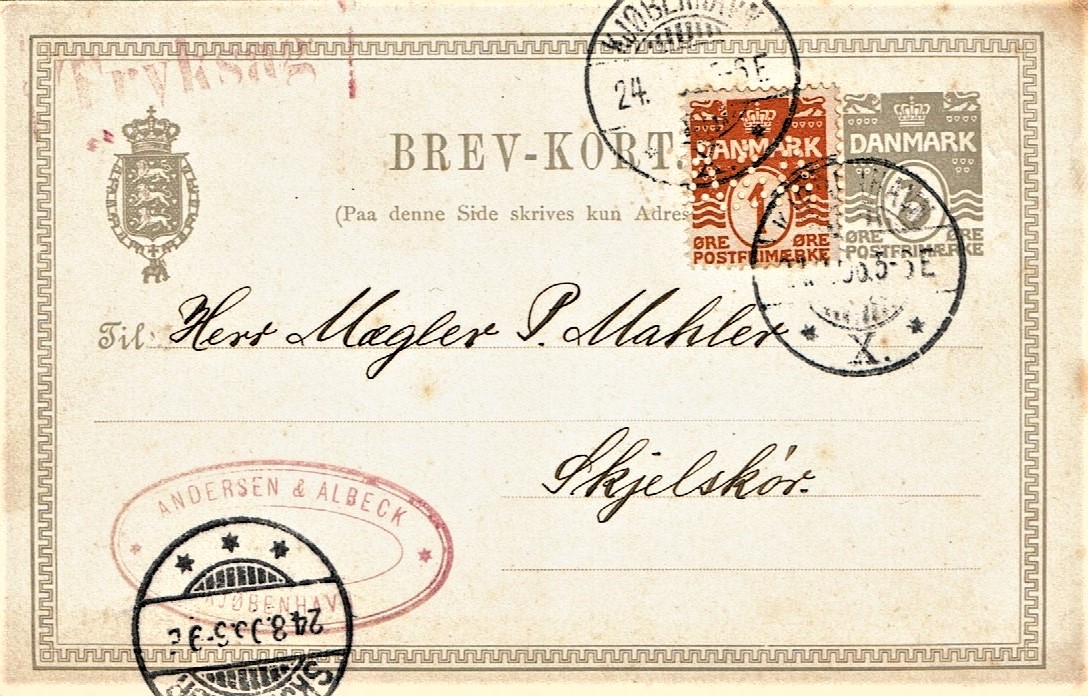 Tryksag
KJØBENHAVN
24. 5-6 E
X.
BREV-KORT.
(Paa denne Side skrives kun Adres
DANMARK
1
ØRE ØRE
POSTFRIMÆRKE
DANMARK
ØRE ØRE
POSTFRIMÆRKE
5-6 E
X.
Til: Herr Mægler P. Mahler
Skjelskör.
ANDERSEN & ALBECK
KJØBENHAV
24.8.